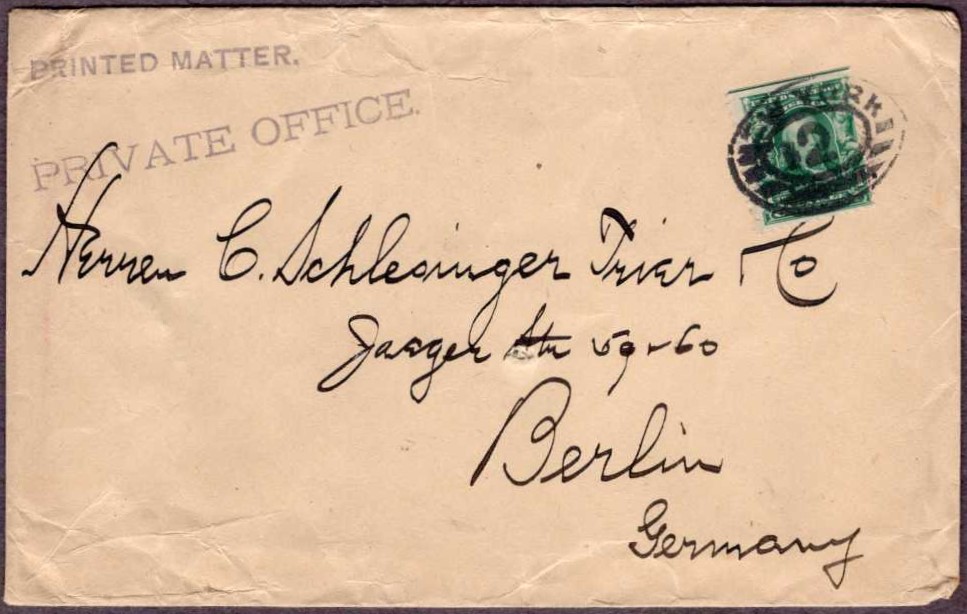 PRINTED MATTER.
PRIVATE OFFICE.
NEW YORK
12
Herren C. Schlesinger Trier & Co
Jaeger Str 59-60
Berlin
Germany